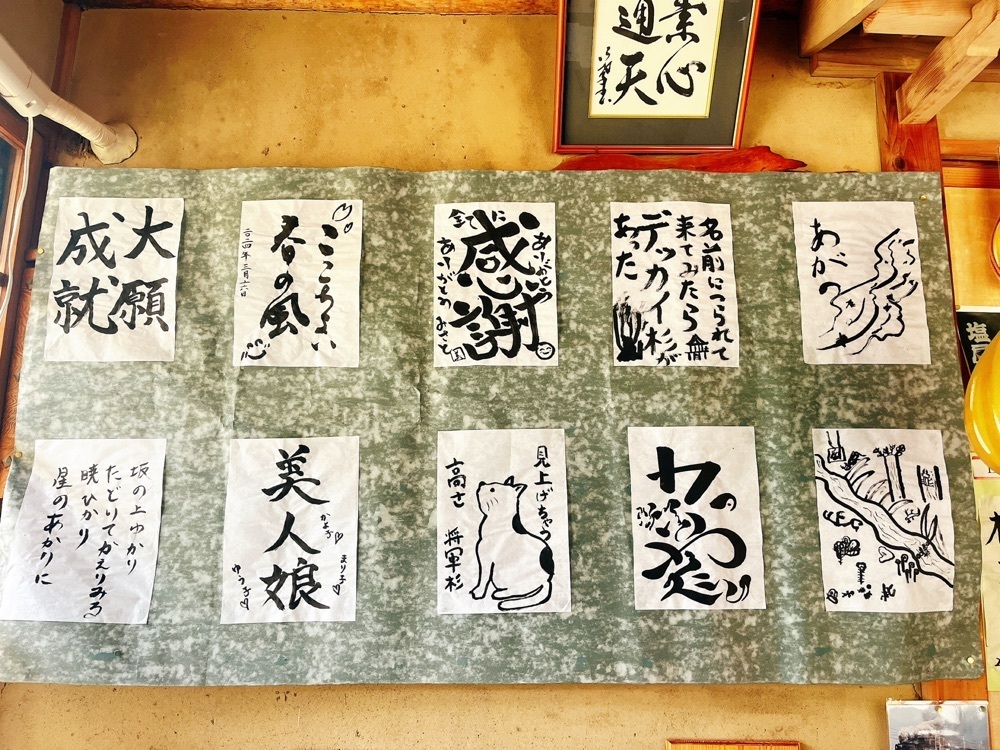 通天
大願
成就
ここちよい
春の風
二〇二四年三月十六日
全てに
感謝
ありがとう
名前につられて
来てみたら
デッカイ杉が
あった
あがの
坂の上ゆかり
たどりてかえりみる
暁ひかり
星のあかりに
美人娘
かよ子
まり子
ゆう子
見上げちゃう
高さ 将軍杉
塩